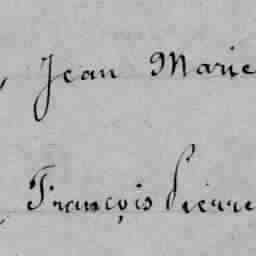 , Jean Marie
, François Pierre